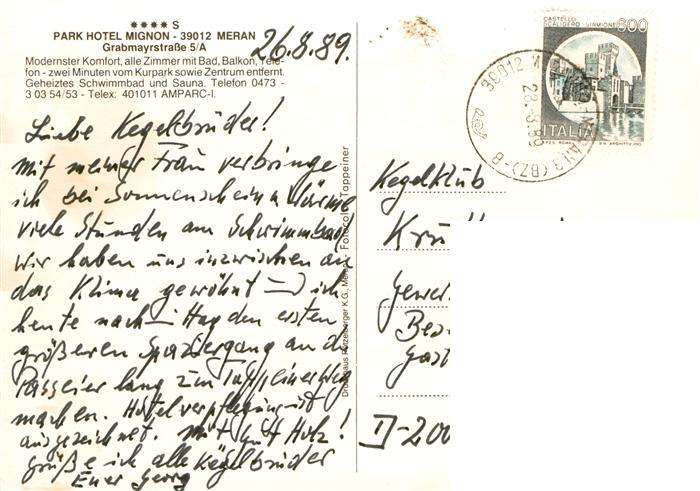 ★★★★ S
PARK HOTEL MIGNON - 39012 MERAN
Grabmayrstraße 5/A
Modernster Komfort, alle Zimmer mit Bad, Balkon, Tele-
fon - zwei Minuten vom Kurpark sowie Zentrum entfernt.
Geheiztes Schwimmbad und Sauna. Telefon 0473 -
3 03 54/53 - Telex: 401011 AMPARC-I.
26.8.89.
Liebe Kegelbrüder!
Mit meiner Frau verbringe
ich bei Sonnenschein u Wärme
viele Stunden am Schwimmbad
wir haben uns inzwischen an
das Klima gewöhnt ich
heute nach Mittag den ersten
größeren Spaziergang an der
Passeier lang zum Tappeinerweg
machen. Hotelverpflegung ist
ausgezeichnet. Mit Gut Holz!
grüße ich alle Kegelbrüder
Euer Georg
Druckhaus Pötzelberger K.G., Meran Fotocolor Tappeiner
CASTELLO
SCALIGERO - SIRMIONE
600
ITALIA
39012
28.-8.89
(BZ)-B
Kegelklub
Kru
Gewer
Bez
Gast
D-200